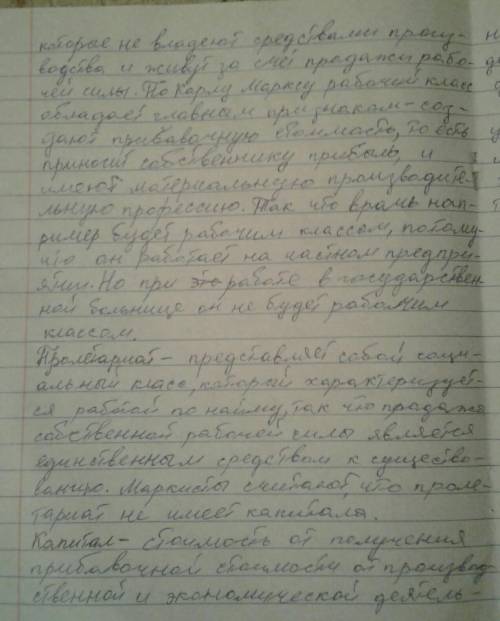 которые не владеют средствами произ-
водства и живут за счёт продажи рабо-
чей силы. По Карлу Марксу рабочий класс
обладает главным признаком - соз-
дают прибавочную стоимость, то есть
приносит собственнику прибыль, и
имеют материальную производите-
льную профессию. Так что врачь нап-
ример будет рабочим классом, потому-
что он работает на частном предпри-
ятии. Но при это работе в государствен-
ной больнице он не будет рабочим
классом.
Пролетариат - представляет собой соци-
альный класс, который характеризует-
ся работой по найму, так что продажа
собственной рабочей силы является
единственным средством к существо-
ванию. Маркисты считают, что проле-
тариат не имеет капитала.
Капитал - стоимость от получения
прибавочной стоимости от производ-
ственной и экономической деятель-